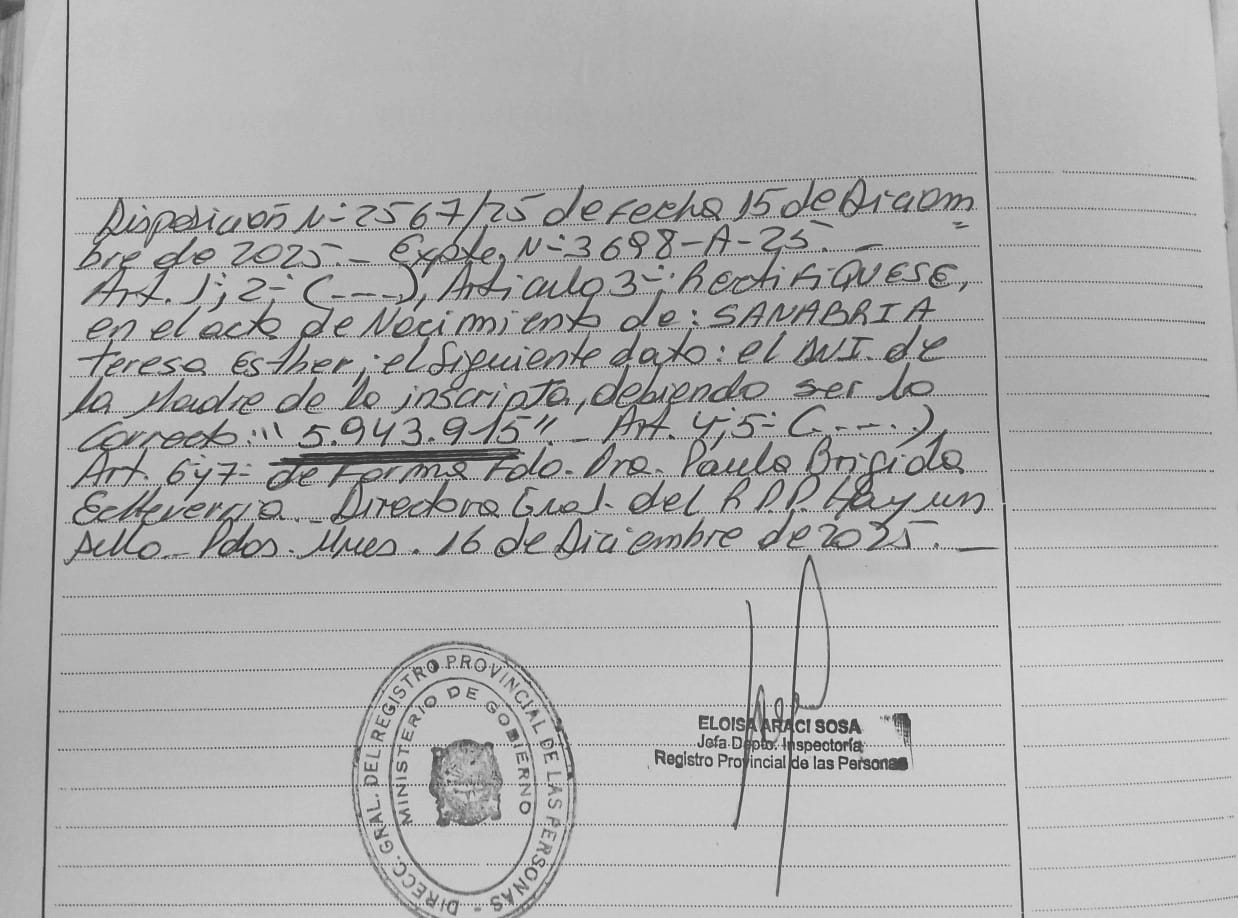 Disposición N-2567/25 de fecha 15 de Diciem
bre de 2025.- Expte. N-3698-A-25.-
Art. 1-; 2-; (----), Articulo 3-: RectifiQUESE,
en el acta de Nacimiento de: SANABRIA
Teresa Esther; el siguiente dato: el DNI. de
la Madre de la inscripta, debiendo ser lo
Correcto: "5.943.915".- Art. 4;5- (-----),
Art. 6y7- de Forma Fdo. Dra. Paula Brigida
Echeverria - Directora Gral. del R.P.P. Hay un
sello - Pdos. Mnes. 16 de Diciembre de 2025. -
DIRECC. GRAL. DEL REGISTRO PROVINCIAL DE LAS PERSONAS -
MINISTERIO DE GOBIERNO
ELOISA ARACI SOSA
Jefa Depto. Inspectoría
Registro Provincial de las Personas